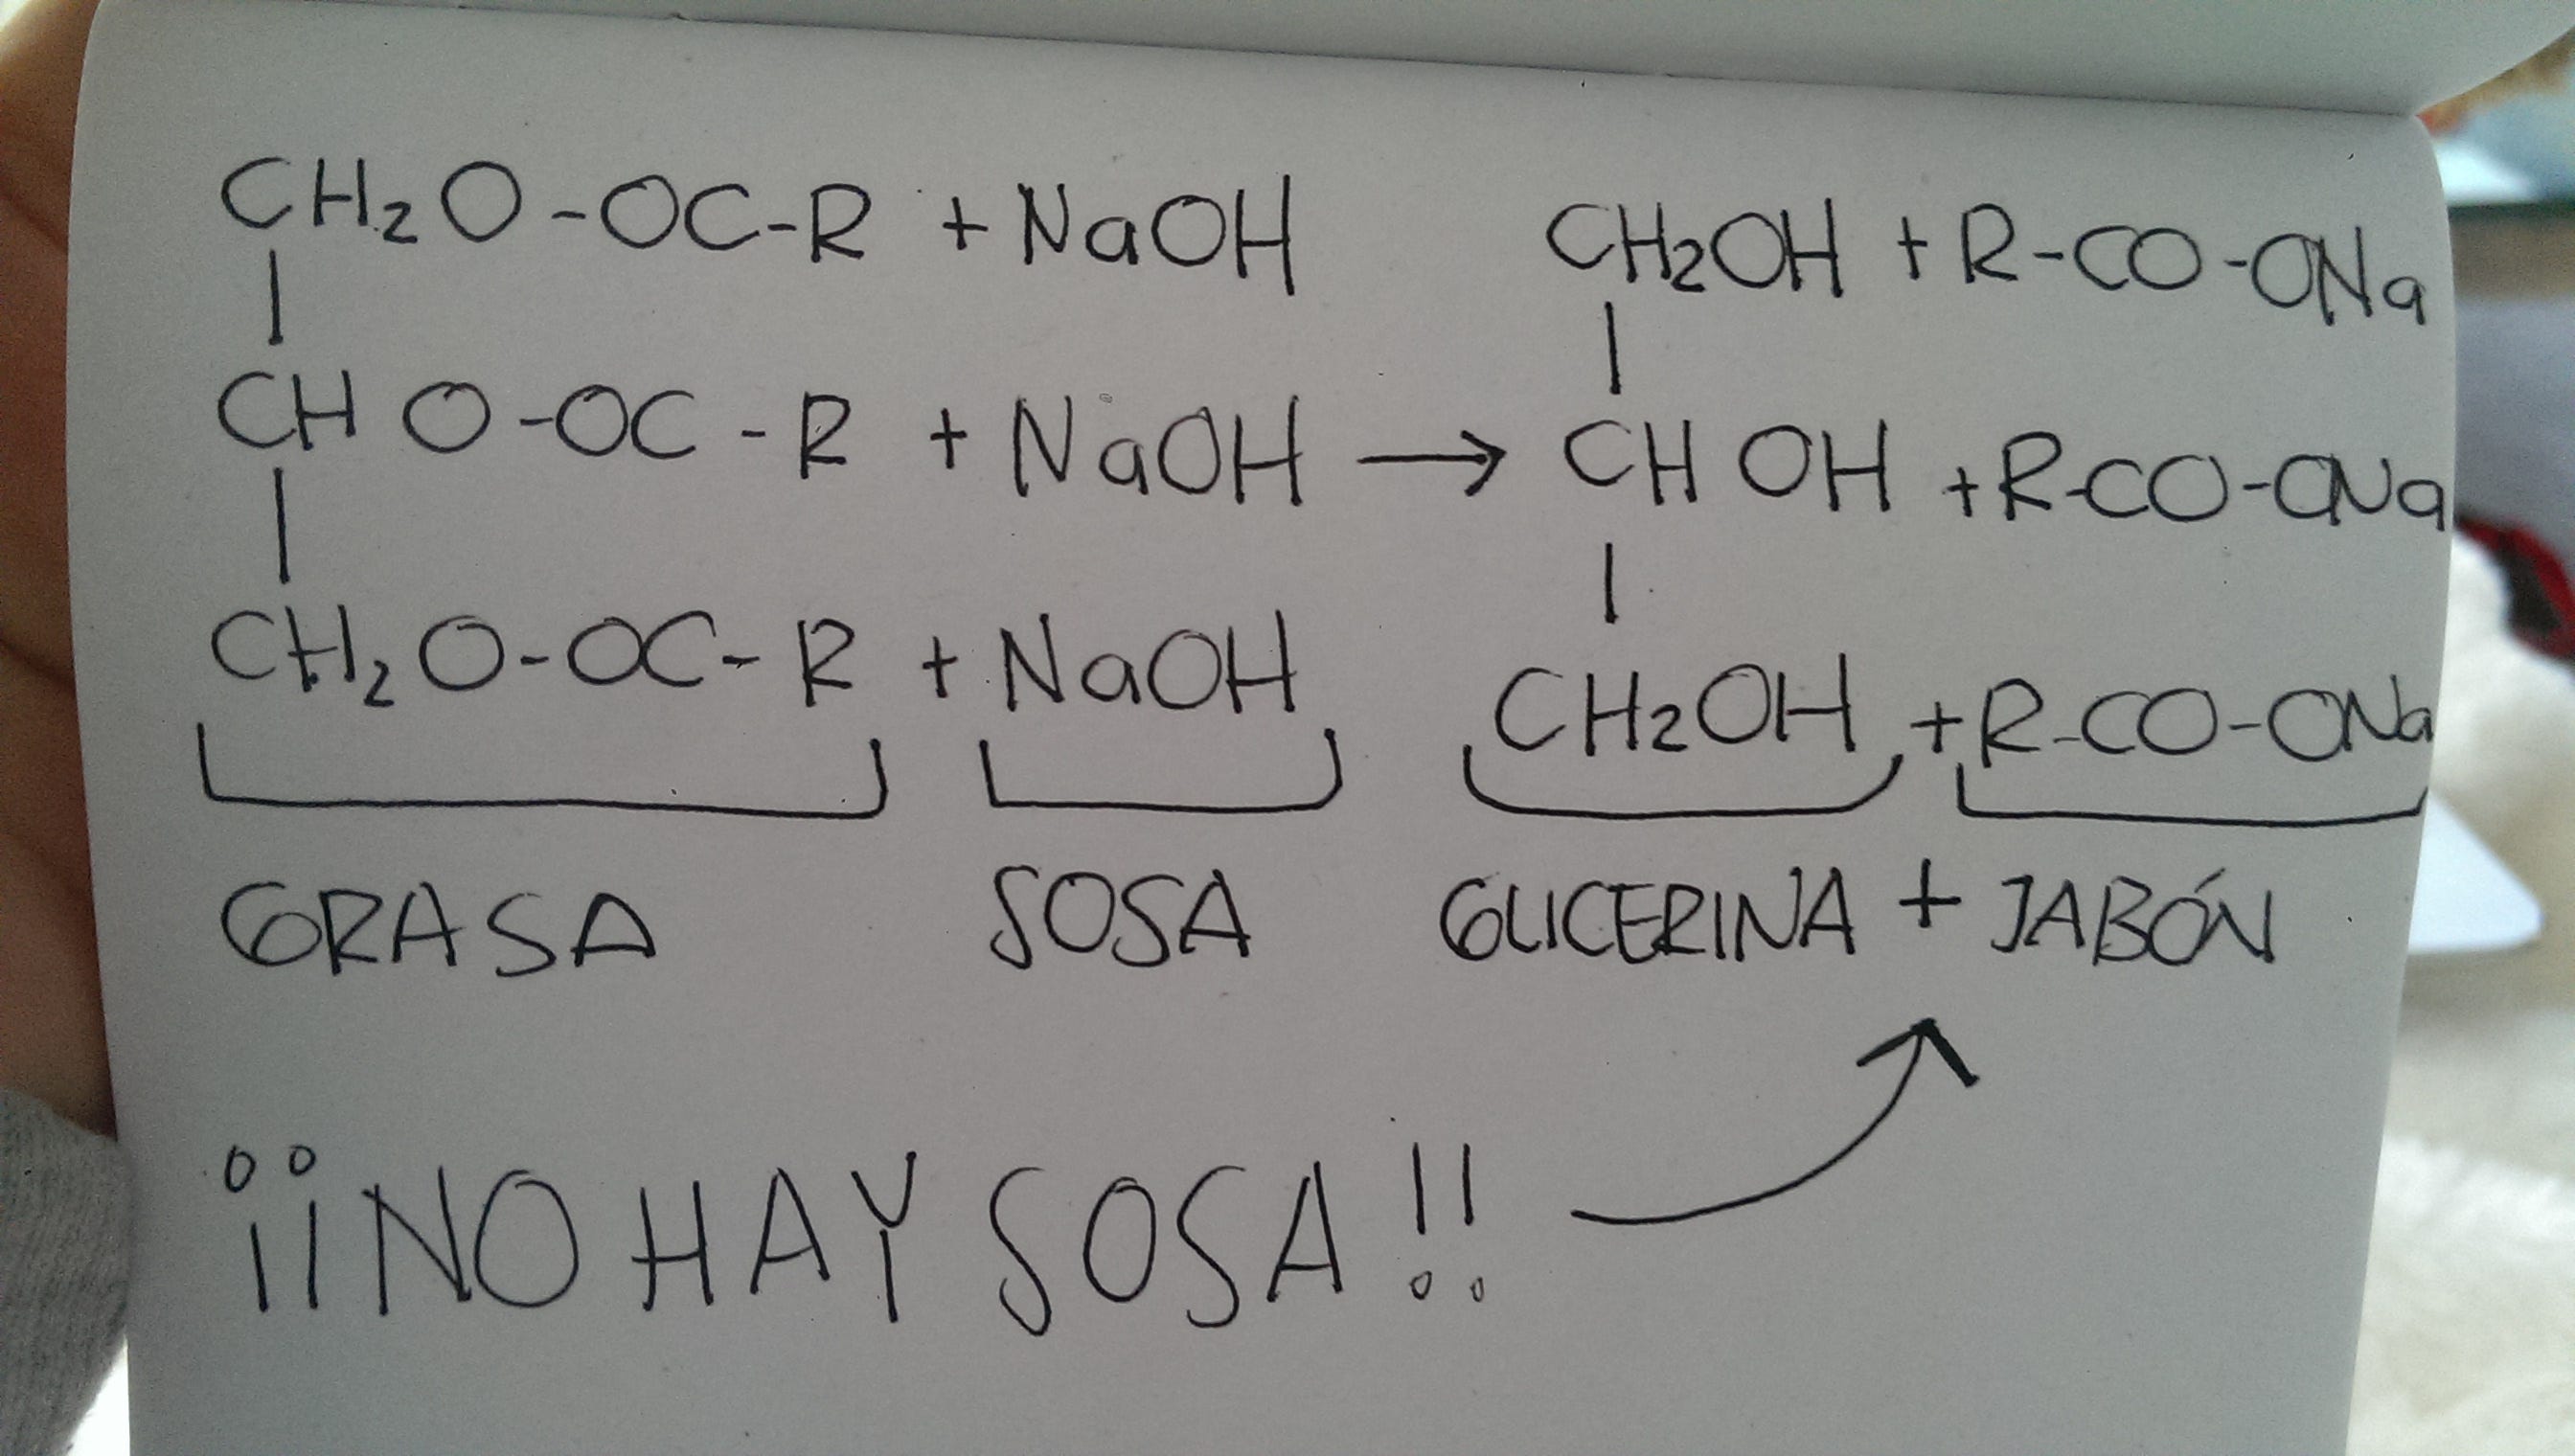 CH₂O-OC-R + NaOH CH₂OH + R-CO-ONa
|
|
CHO-OC-R + NaOH → CHOH + R-CO-ONa
|
|
CH₂O-OC-R + NaOH CH₂OH + R-CO-ONa
GRASA SOSA GLICERINA + JABÓN
¡¡NO HAY SOSA!!